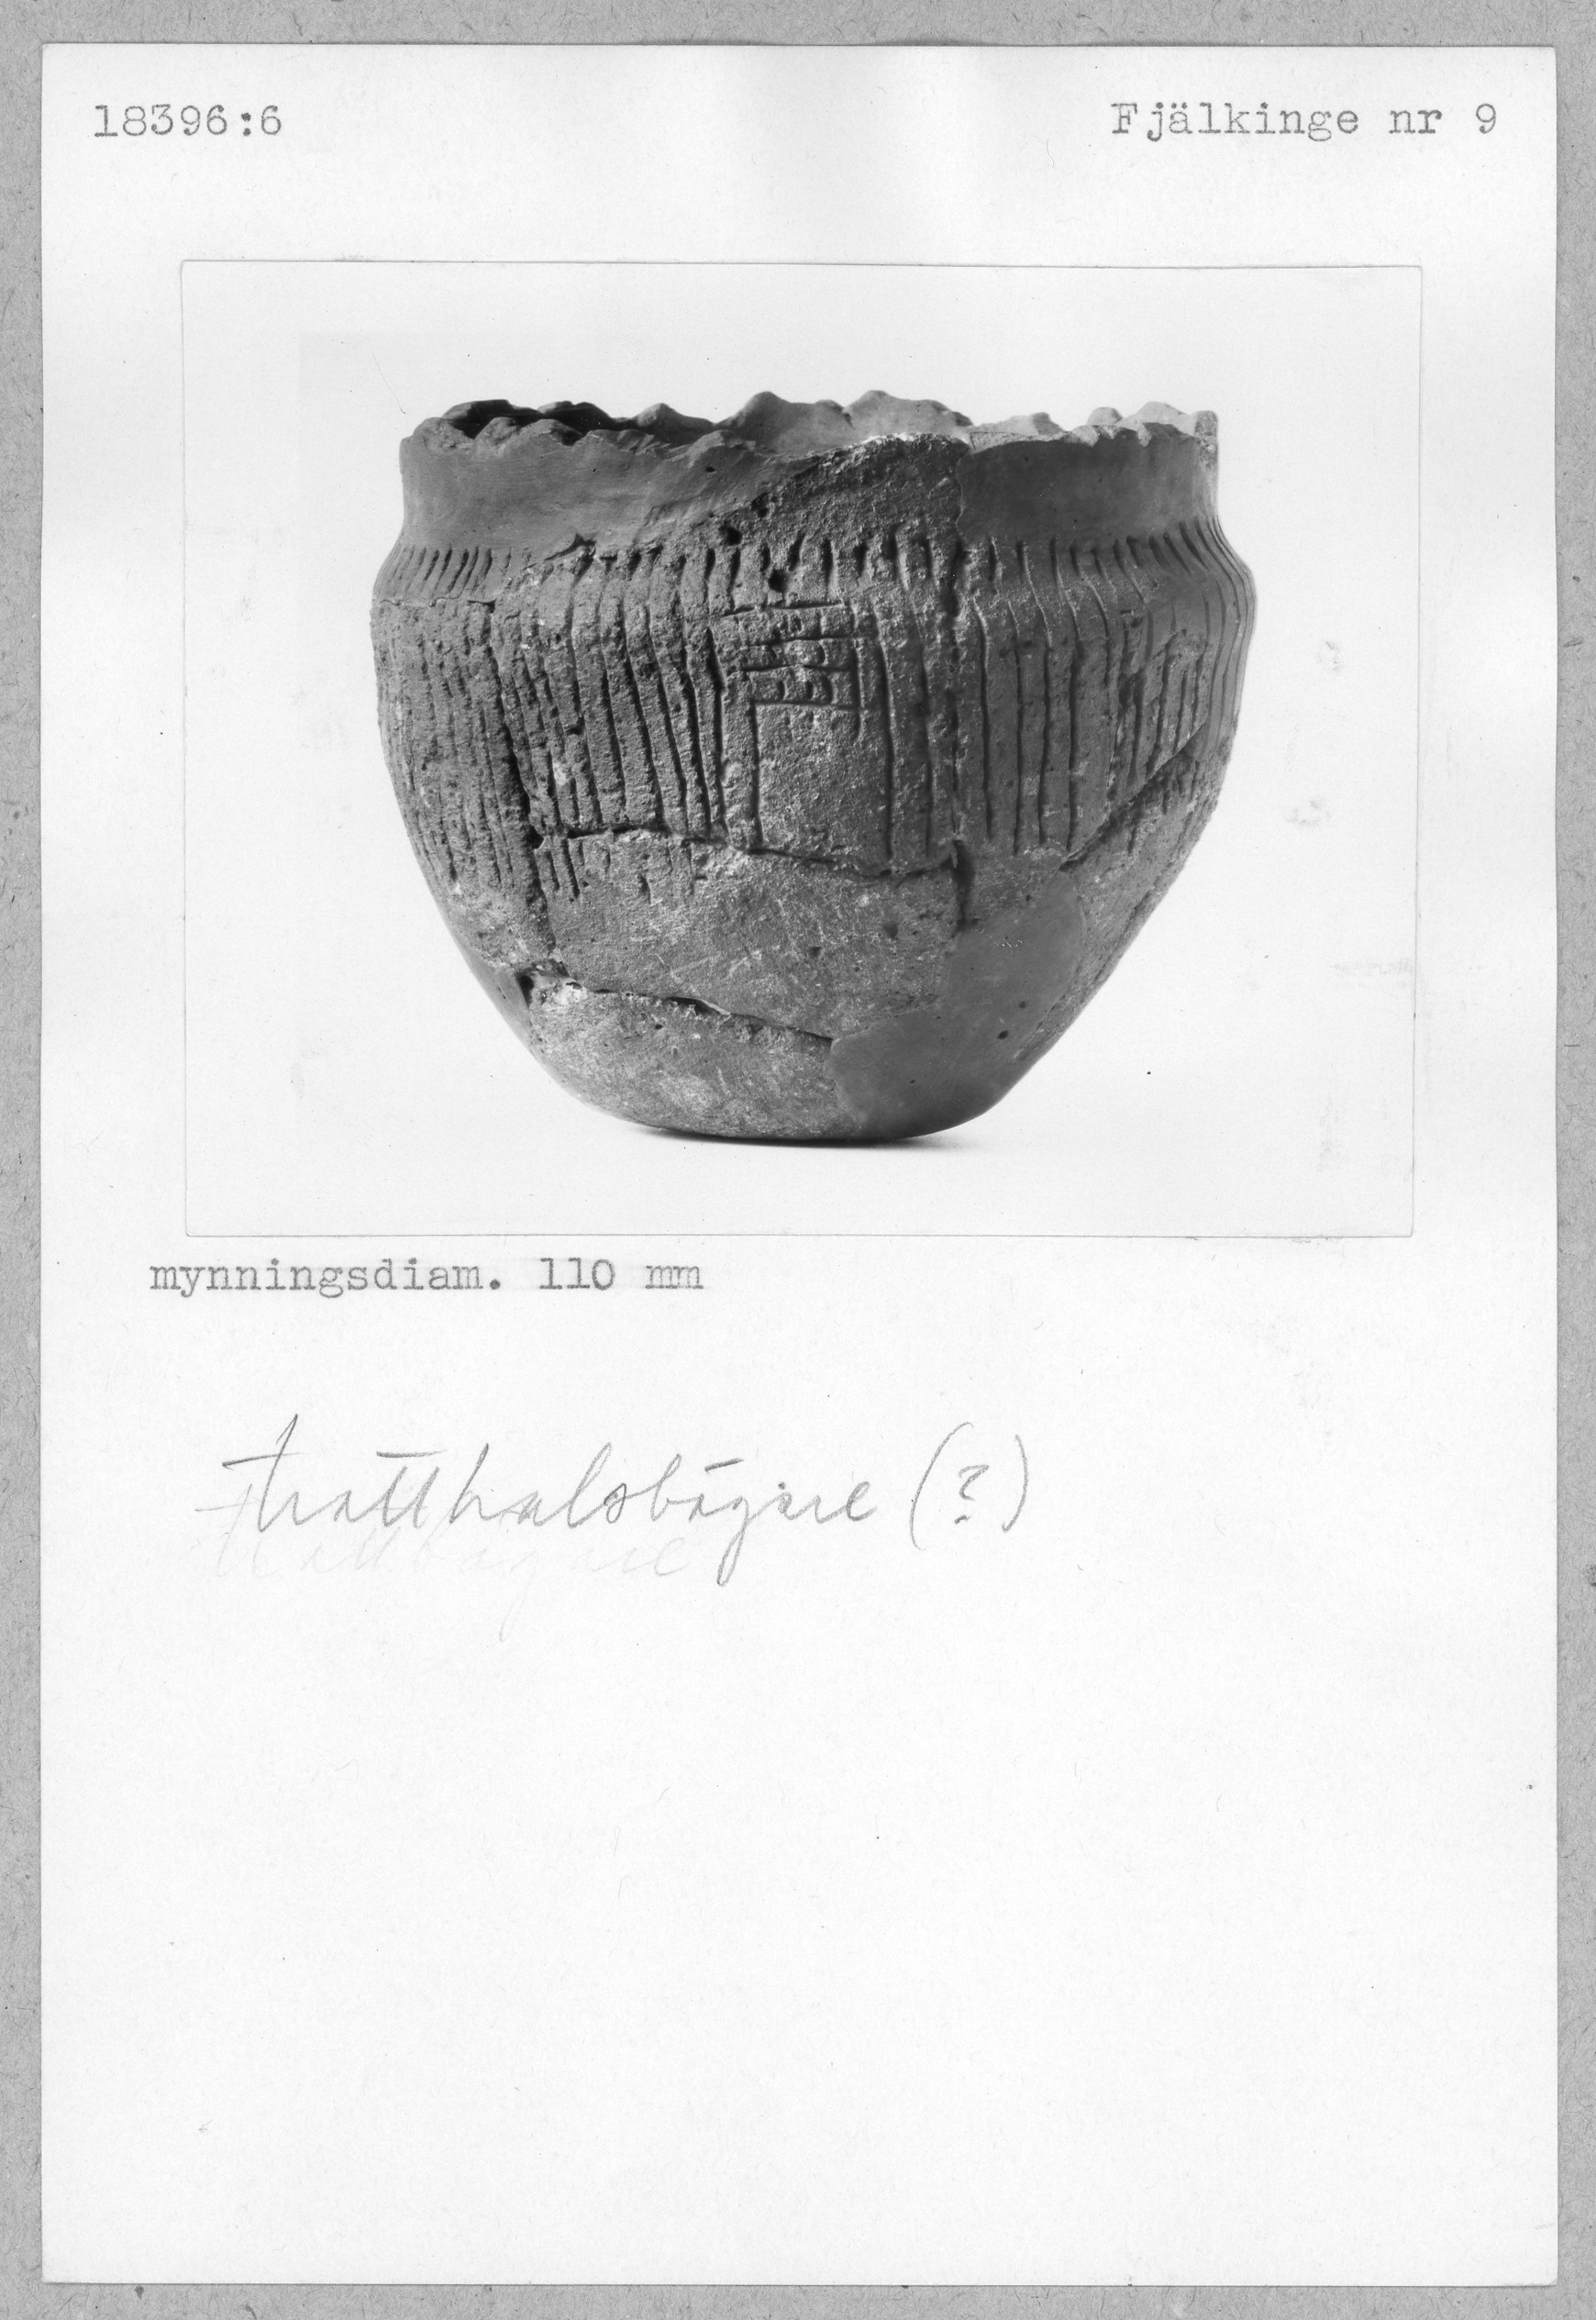 18396:6
Fjälkinge nr 9
mynningsdiam. 110 mm
tratthalsbägare (?)
trattbägare